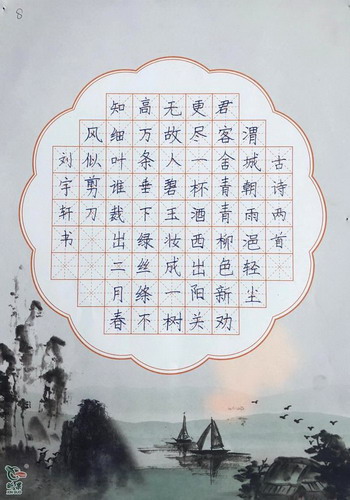 8
古诗两首
渭城朝雨浥轻尘
君客舍青青柳色新劝
更尽一杯酒西出阳关
无故人碧玉妆成一树
高万条垂下绿丝绦不
知细叶谁裁出二月春
风似剪刀
刘宇轩书